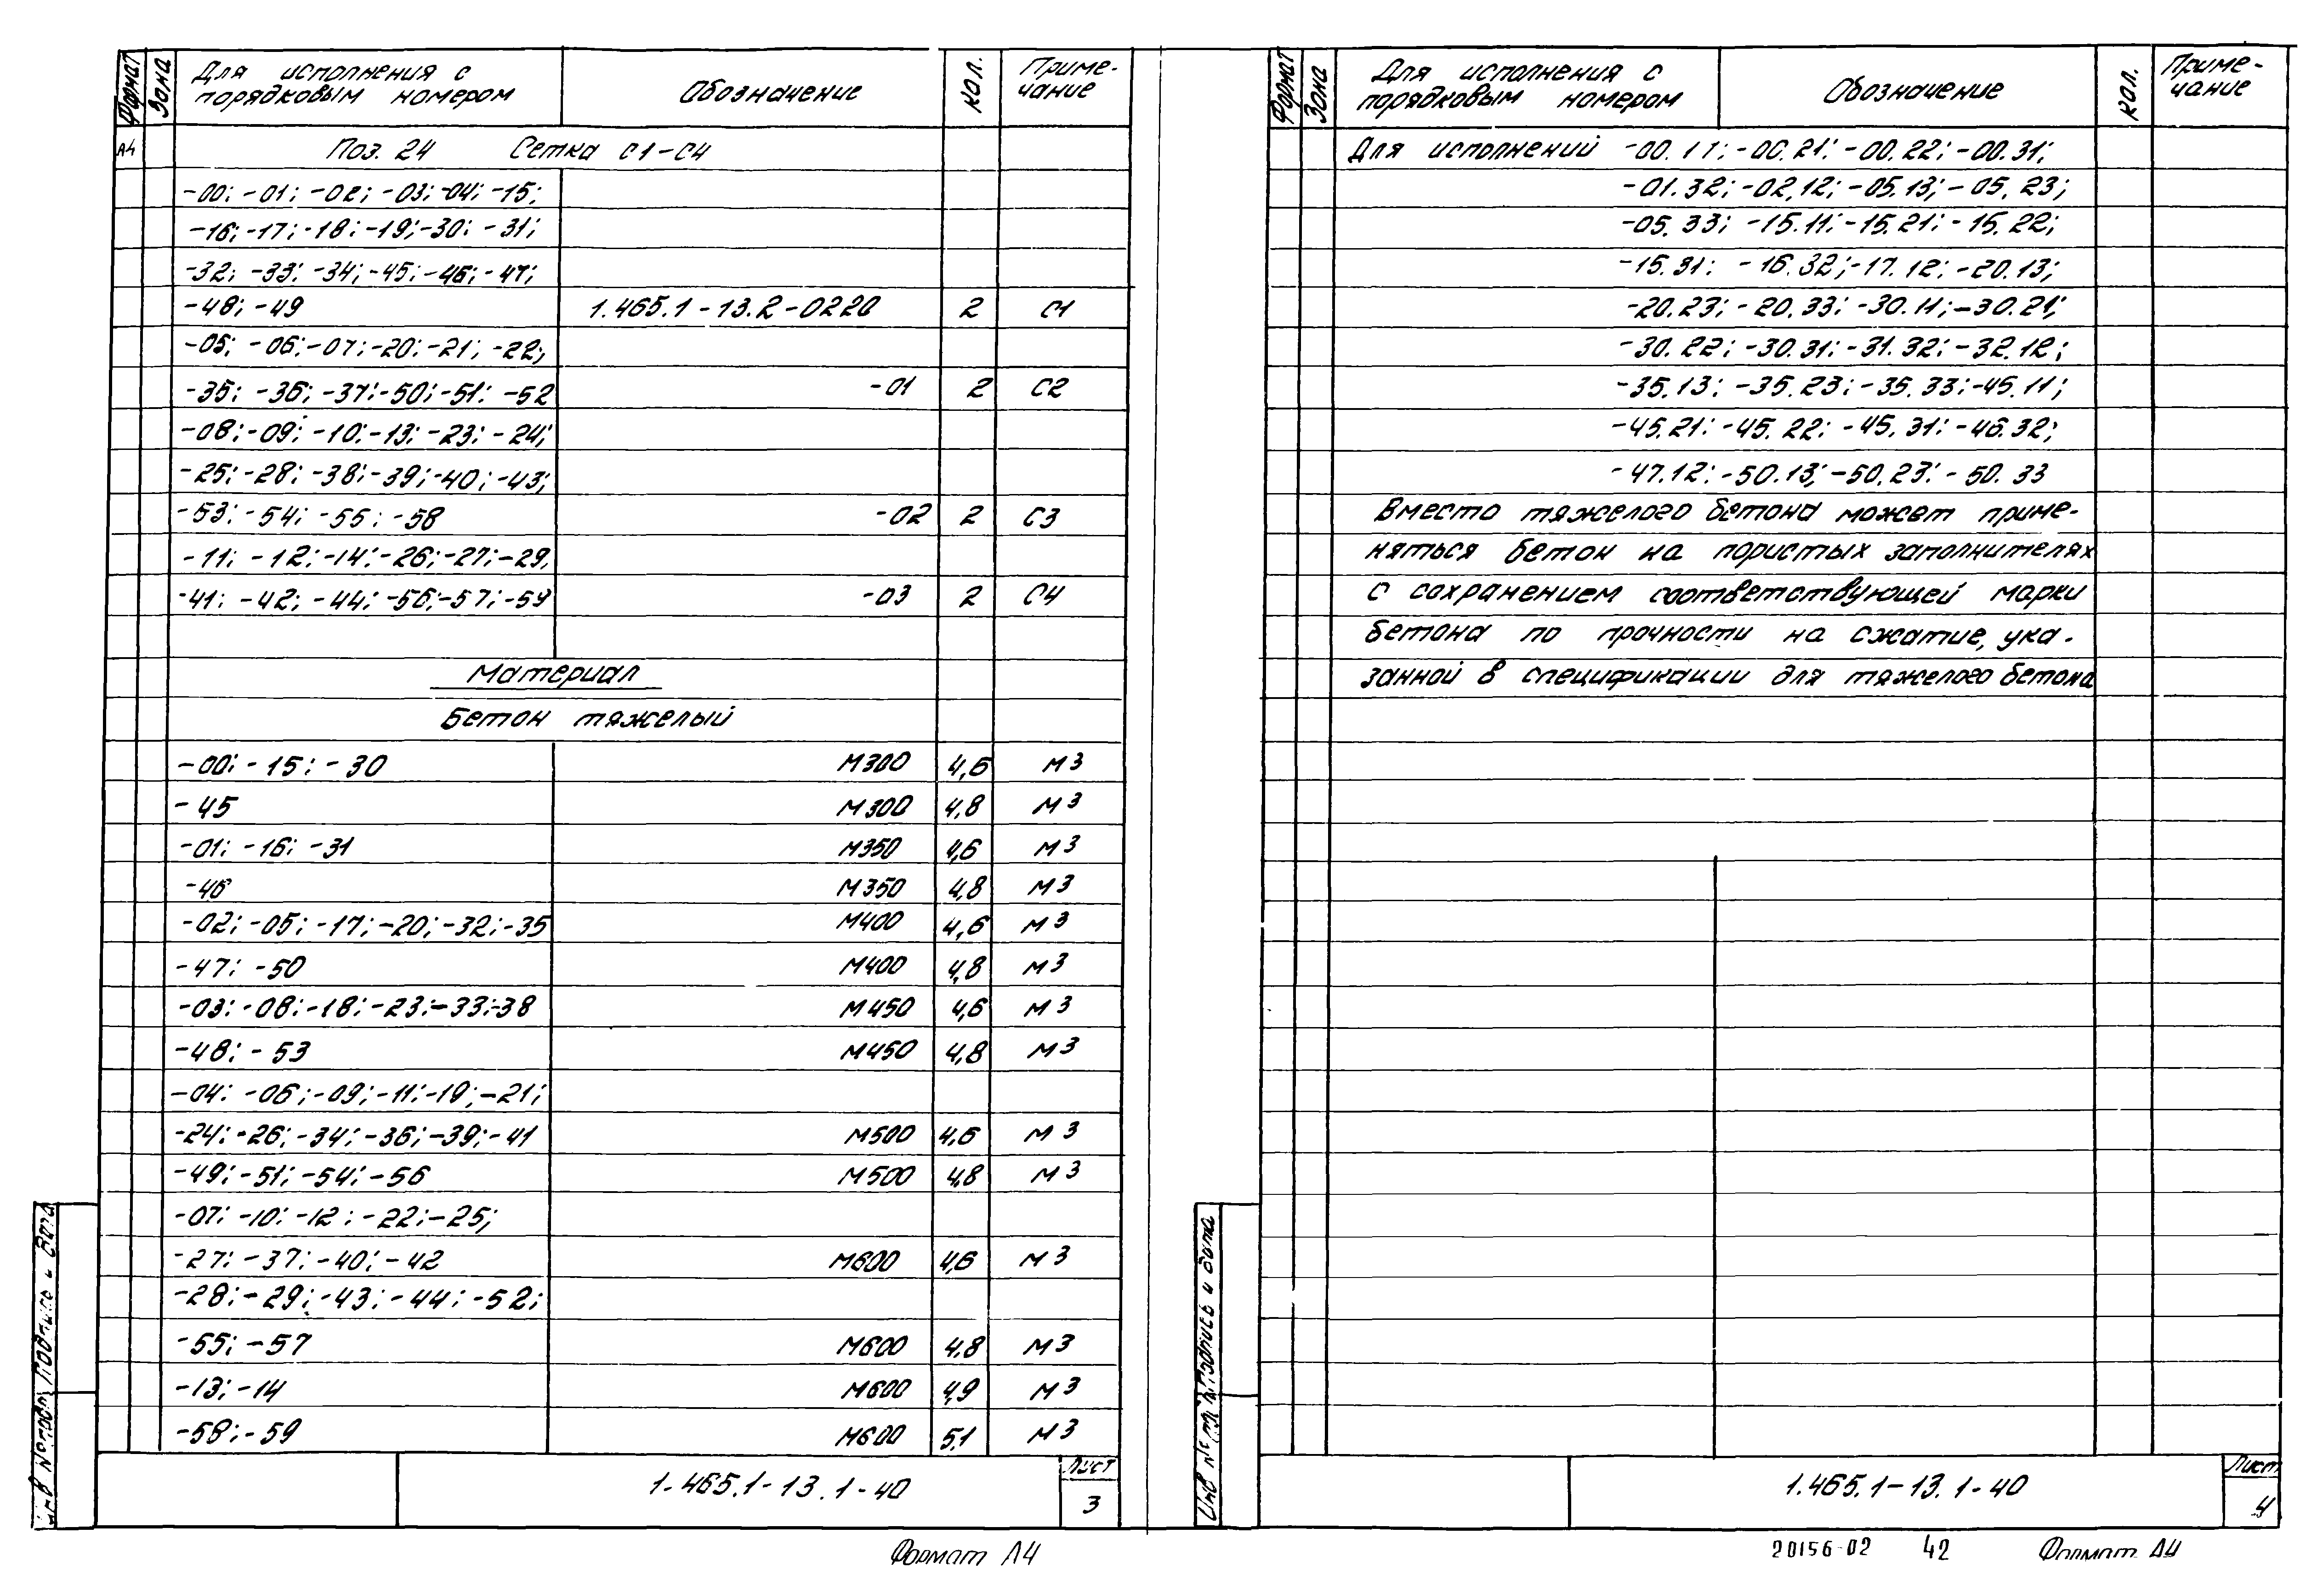 Формат
Зона
Для исполнения с порядковым номером
Обозначение
Кол.
Примечание
А4 Поз. 24 Сетка С1-С4
-00; -01; -02; -03; -04; -15;
-16; -17; -18; -19; -30; -31;
-32; -33; -34; -45; -46; -47;
-48; -49 1.465.1-13.2-0220 2 С1
-05; -06; -07; -20; -21; -22;
-35; -36; -37; -50; -51; -52 -01 2 С2
-08; -09; -10; -13; -23; -24;
-25; -28; -38; -39; -40; -43;
-53; -54; -55; -58 -02 2 С3
-11; -12; -14; -26; -27; -29;
-41; -42; -44; -56; -57; -59 -03 2 С4
Материал
Бетон тяжелый
-00; -15; -30 М300 4,6 м3
-45 М300 4,8 м3
-01; -16; -31 М350 4,6 м3
-46 М350 4,8 м3
-02; -05; -17; -20; -32; -35 М400 4,6 м3
-47; -50 М400 4,8 м3
-03; -08; -18; -23; -33; -38 М450 4,6 м3
-48; -53 М450 4,8 м3
-04; -06; -09; -11; -19; -21;
-24; -26; -34; -36; -39; -41 М500 4,6 м3
-49; -51; -54; -56 М500 4,8 м3
-07; -10; -12; -22; -25;
-27; -37; -40; -42 М600 4,6 м3
-28; -29; -43; -44; -52;
-55; -57 М600 4,8 м3
-13; -14 М600 4,9 м3
-58; -59 М600 5,1 м3
1.465.1-13.1-40
Лист
3
Формат А4
Формат
Зона
Для исполнения с порядковым номером
Обозначение
Кол.
Примечание
Для исполнений -00.11; -00.21; -00.22; -00.31;
-01.32; -02.12; -05.13; -05.23;
-05.33; -15.11; -15.21; -15.22;
-15.31; -16.32; -17.12; -20.13;
-20.23; -20.33; -30.11; -30.21;
-30.22; -30.31; -31.32; -32.12;
-35.13; -35.23; -35.33; -45.11;
-45.21; -45.22; -45.31; -46.32;
-47.12; -50.13; -50.23; -50.33
Вместо тяжелого бетона может приме-
няться бетон на пористых заполнителях
с сохранением соответствующей марки
бетона по прочности на сжатие, ука-
занной в спецификации для тяжелого бетона
Подпись и дата
1.465.1-13.1-40
Лист
4
20156-02 42 Формат А4